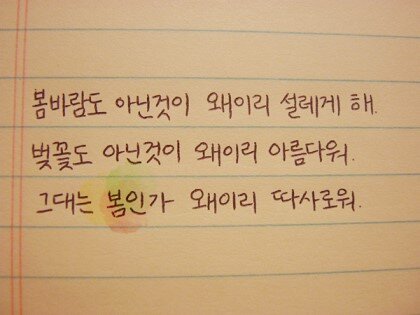 봄바람도 아닌것이 왜이리 설레게 해.
벚꽃도 아닌것이 왜이리 아름다워.
그대는 봄인가 왜이리 따사로워.